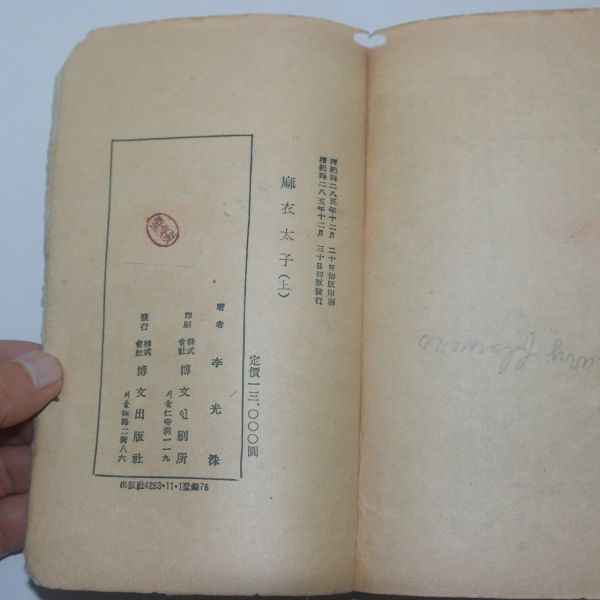 檀紀四二八五年十二月 二十日初版印刷
檀紀四二八五年十二月 三十日初版發行
麻衣太子(上)
定價一三,〇〇〇圓
著者 李光洙
印刷 株式會社 博文인刷所
서울仁峴洞一一九
發行 株式會社 博文出版社
서울鍾路二街八六
出版社4283·11·1登錄76
flowers